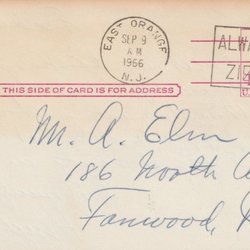 EAST ORANGE
SEP 9
AM
1966
N. J.
ALWA
ZI
THIS SIDE OF CARD IS FOR ADDRESS
Mr. A. Elm
186 North A
Fanwood,